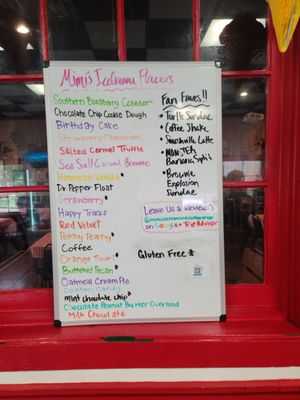 Mimi's Icecream Flavors
Southern Blackberry Cobbler
Chocolate Chip Cookie Dough
Birthday Cake
Strawberry Cheesecake
Salted Caramel Truffle
Sea Salt Caramel Brownie
Homemade Vanilla *
Dr. Pepper Float
Strawberry *
Happy Tracks
Red Velvet
Peachy Peachy *
Coffee
Orange Swirl *
Buttered Pecan *
Oatmeal Cream Pie
Cotton Candy
Mint chocolate chip *
Chocolate Peanut Butter Overload
Milk Chocolate
Fan Faves!!
• Turtle Sundae
• Coffee Shake
• Smashville Latte
• Banana Split
• Brownie
Explosion
Sundae
Leave Us a Review :)
on Google + Trip Advisor
Gluten Free *